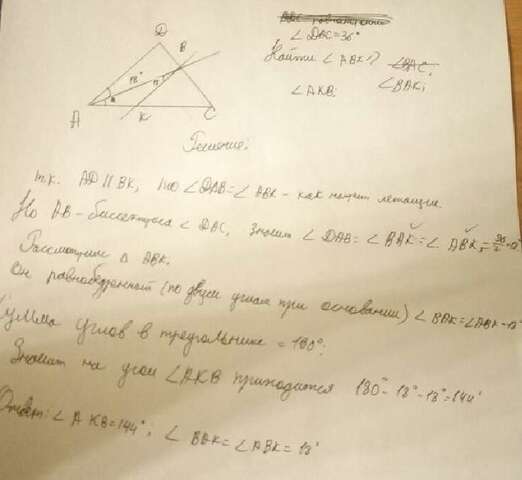 ∠DAC=36°
Найти ∠ABK?
∠BAK;
∠AKB;
D
B
18°
A
K
C
Решение:
т.к. AD || BK, то ∠DAB=∠ABK - как накрест лежащие.
Но AB-биссектриса ∠DAC, значит ∠DAB=∠BAK=∠ABK=36/2=18°
Рассмотрим Δ ABK.
Он равнобедренный (по двум углам при основании) ∠BAK=∠ABK=18°
Сумма углов в треугольнике = 180°;
Значит на угол ∠AKB приходится 180°-18°-18°=144°
Ответ: ∠AKB=144°; ∠BAK=∠ABK=18°